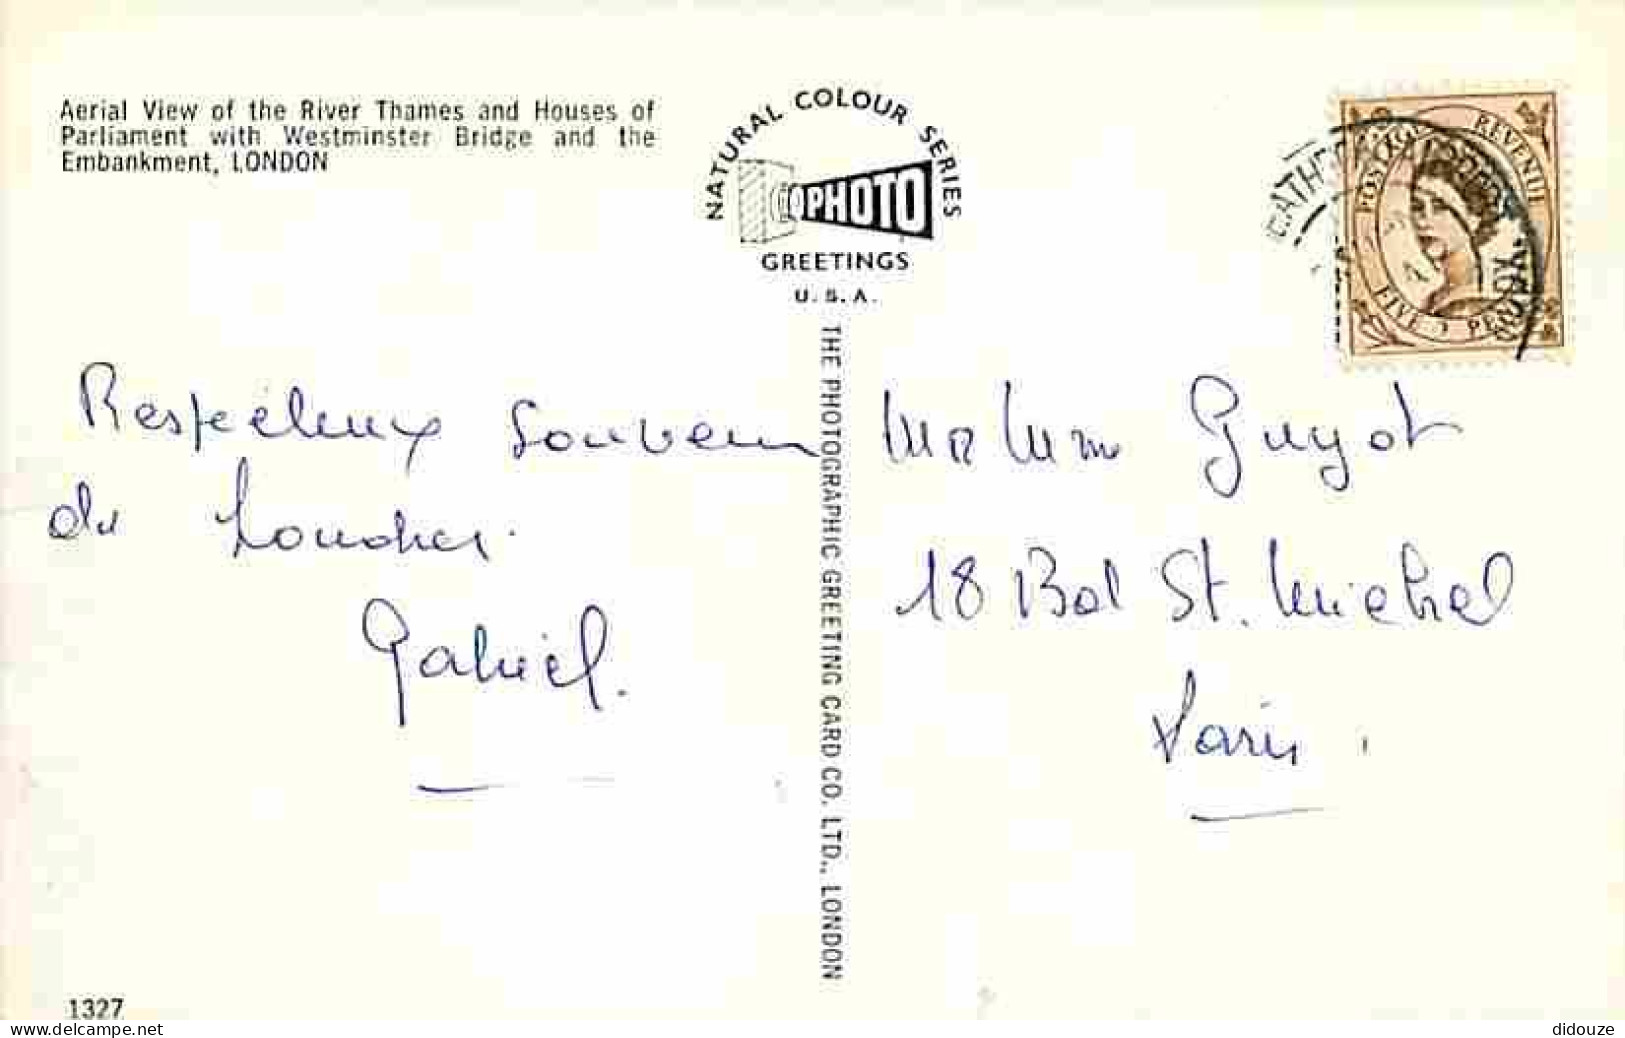 Aerial View of the River Thames and Houses of
Parliament with Westminster Bridge and the
Embankment, LONDON
NATURAL COLOUR SERIES
PHOTO
GREETINGS
U.S.A.
THE PHOTOGRAPHIC GREETING CARD CO. LTD., LONDON
POSTAGE REVENUE
FIVE PENCE
Respectueux souvenir
de Londres.
Gabriel.
Mr Mme Guyot
18 Bd St. Michel
Paris
1327
didouze